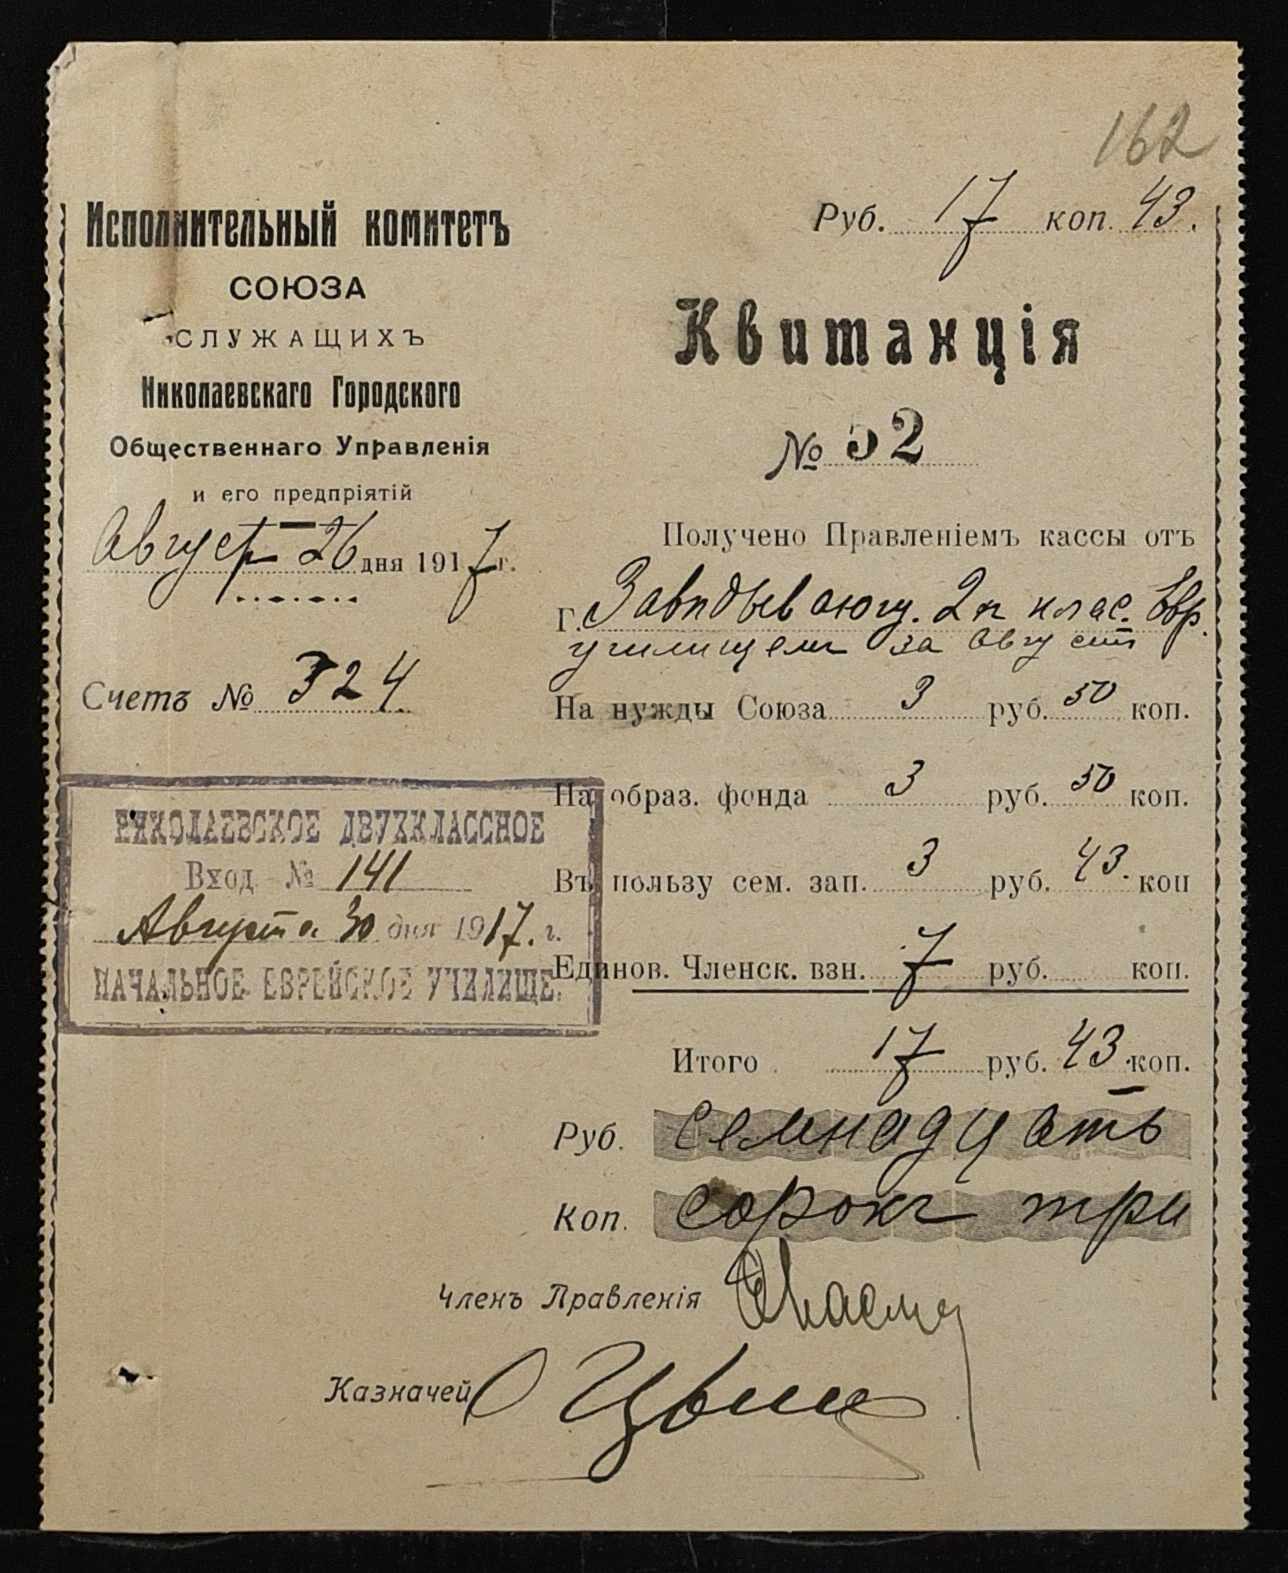 162
Исполнительный комитетъ
СОЮЗА
СЛУЖАЩИХЪ
Николаевскаго Городского
Общественнаго Управленія
и его предпріятій
Август 26 дня 1917 г.
Счетъ № 324
НИКОЛАЕВСКОЕ ДВУХКЛАССНОЕ
Вход № 141
Августа 30 дня 1917. г.
НАЧАЛЬНОЕ ЕВРЕЙСКОЕ УЧИЛИЩЕ.
Руб. 17 коп. 43.
Квитанція
№ 52
Получено Правленіемъ кассы отъ
Г. Завѣдывающ. 2х клас. Евр.
училищемъ за Августъ
На нужды Союза 3 руб. 50 коп.
На образ. фонда 3 руб. 50 коп.
Въ пользу сем. зап. 3 руб. 43. коп
Единов. Членск. взн. 7 руб. коп.
Итого 17 руб. 43 коп.
Руб. Семнадцать
Коп. Сорокъ три
Членъ Правленія
Казначей